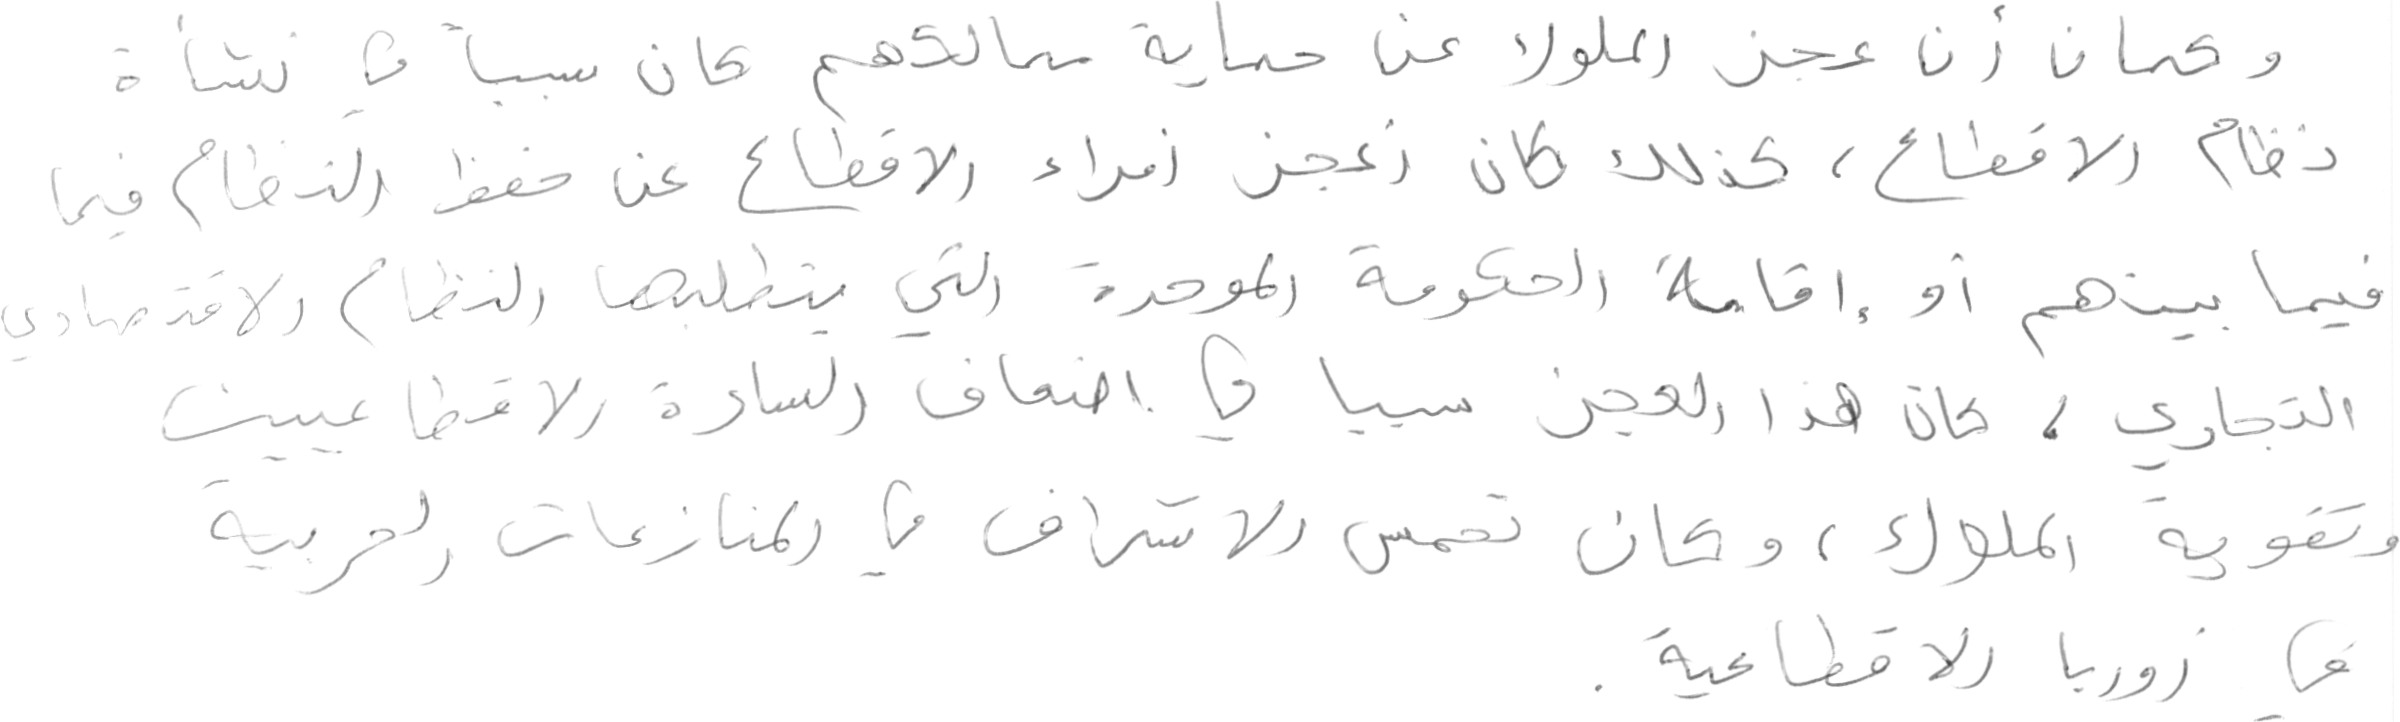 وكمان أن عجز الملوك عن حماية ممالكهم كان سبباً في نشأة
نظام الاقطاع، كذلك كان أعجز أمراء الاقطاع عن حفظ النظام فيما
فيما بينهم أو إقامة الحكومة الموحدة التي يتطلبها النظام الاقتصادي
التجاري، كان هذا العجز سببا في اضعاف السادة الاقطاعيين
وتقوية الملوك، وكان تحمس الاشراف في المنازعات الحربية
في أوربا الاقطاعية.